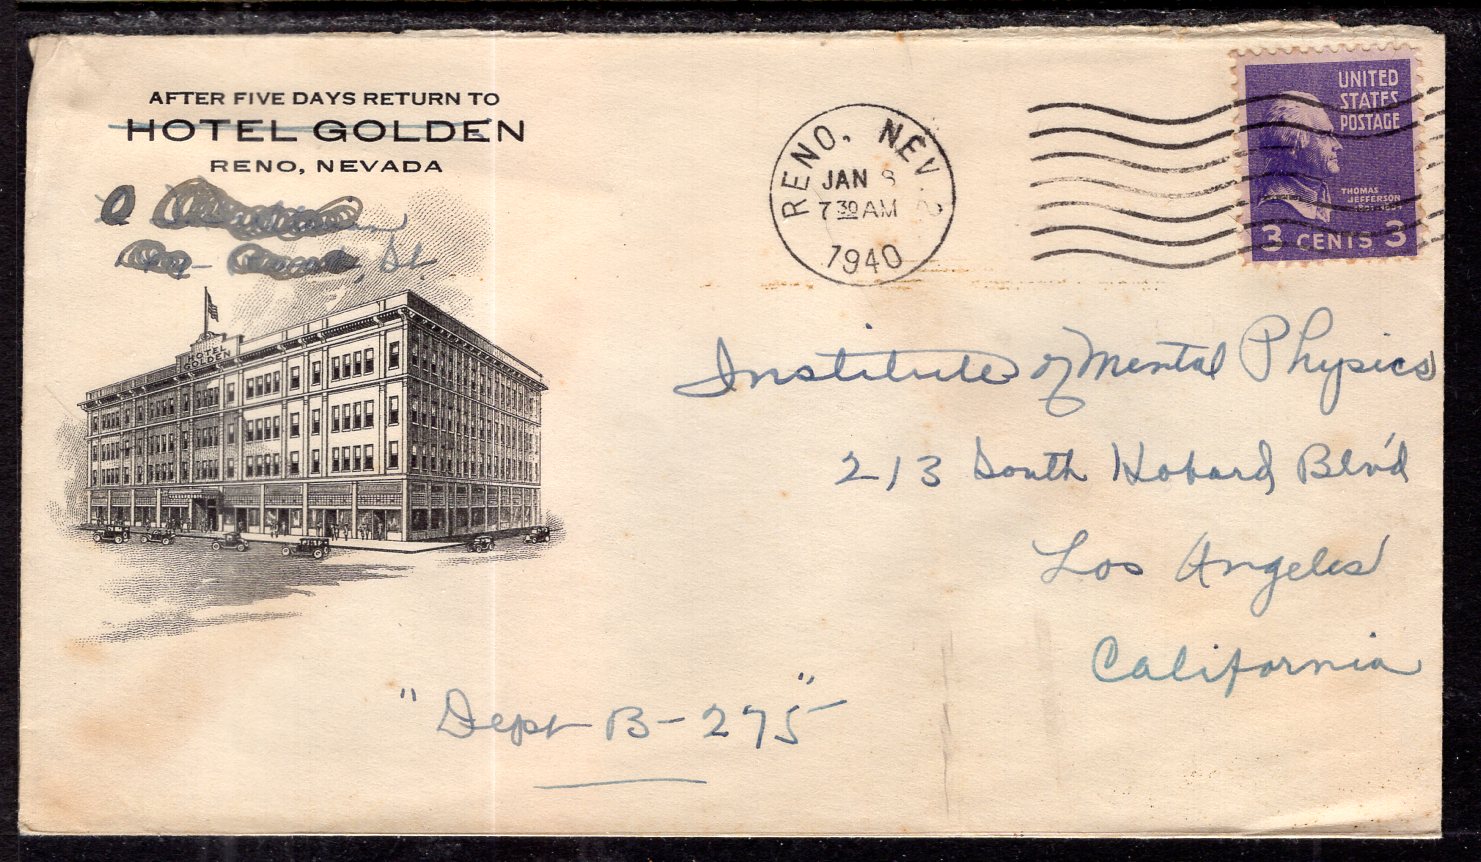 AFTER FIVE DAYS RETURN TO
HOTEL GOLDEN
RENO, NEVADA
St
HOTEL
GOLDEN
RENO, NEV.
JAN 8
7 30 AM
1940
UNITED
STATES
POSTAGE
THOMAS
JEFFERSON
3 CENTS 3
Institute of Mental Physics
213 South Hobard Blv'd
Los Angeles
California
"Dept B-275"